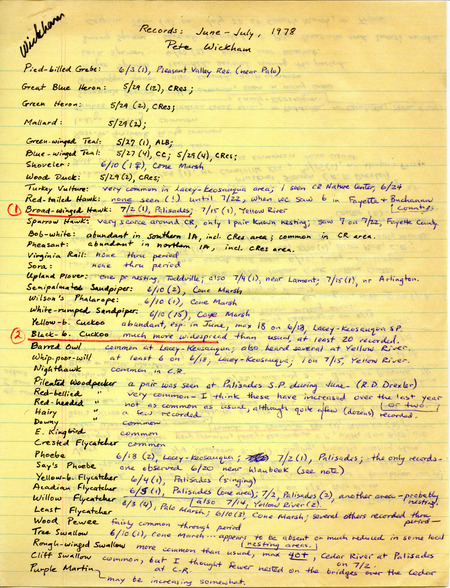 Wickham
Records: June - July, 1978
Pete Wickham
Pied-billed Grebe: 6/3 (1), Pleasant Valley Res. (near Palo)
Great Blue Heron: 5/29 (12), CRes;
Green Heron: 5/29 (2), CRes;
Mallard: 5/29 (2);
Green-winged Teal: 5/27 (1), ALB;
Blue-winged Teal: 5/27 (4), CC; 5/29 (4), CRes;
Shoveler: 6/10 (1 ♀), Cone Marsh
Wood Duck: 5/29 (2), CRes;
Turkey Vulture: very common in Lacey-Keosauqua area; 1 seen CR Nature Center, 6/24
Red-tailed Hawk: none seen (!) until 7/22, when we saw 6 in Fayette + Buchanan Counties
① Broad-winged Hawk: 7/2 (1), Palisades; 7/15 (1), Yellow River
Sparrow Hawk: very scarce around CR, only 1 pair known nesting; saw 7 on 7/22, Fayette County
Bob-white: abundant in southern IA, incl. CRes area; common in CR area.
Pheasant: abundant in northern IA, incl. CRes area.
Virginia Rail: none thru period
Sora: none thru period
Upland Plover: one pr nesting, Toddville; also 7/9 (1), near Lamont; 7/15 (1), nr Arlington.
Semipalmated Sandpiper: 6/10 (2), Cone Marsh
Wilson's Phalarope: 6/10 (1), Cone Marsh
White-rumped Sandpiper: 6/10 (15), Cone Marsh
Yellow-b. Cuckoo abundant, esp. in June, max 18 on 6/18, Lacey-Keosauqua SP.
② Black-b. Cuckoo much more widespread than usual, at least 20 recorded.
Barred Owl common at Lacey-Keosauqua; also heard several at Yellow River.
Whip-poor-will at least 6 on 6/18, Lacey-Keosauqua; 1 on 7/15, Yellow River.
Nighthawk common in C.R.
Pileated Woodpecker a pair was seen at Palisades S.P. during June - (R.D. Drexler)
Red-bellied " very common - I think these have increased over the last year or two.
Red-headed " not as common as usual, although quite a few (dozens) recorded.
Hairy " a few recorded
Downy common
E. Kingbird common
Crested Flycatcher common
Phoebe 6/18 (2), Lacey-Keosauqua; 7/2 (1), Palisades; the only records-
Say's Phoebe one observed 6/20 near Waubeek (see note)
Yellow-b. Flycatcher 6/4 (1), Palisades (singing)
Acadian Flycatcher 6/5 (1), Palisades (one area); 7/2, Palisades (2), another area - probably nesting.
Willow Flycatcher 6/3 (4), Palo Marsh; also 7/14, Yellow River (2).
Least Flycatcher 6/10 (3), Cone Marsh; several others recorded thru period -
Wood Pewee fairly common through period
Tree Swallow 6/10 (1), Cone Marsh -- appears to be absent or much reduced in some local nesting areas.
Rough-winged Swallow more common than usual, max 40+, Cedar River at Palisades on 7/2.
Cliff Swallow common, but I thought fewer nested on the bridges over the Cedar at C.R.
Purple Martin may be increasing somewhat.